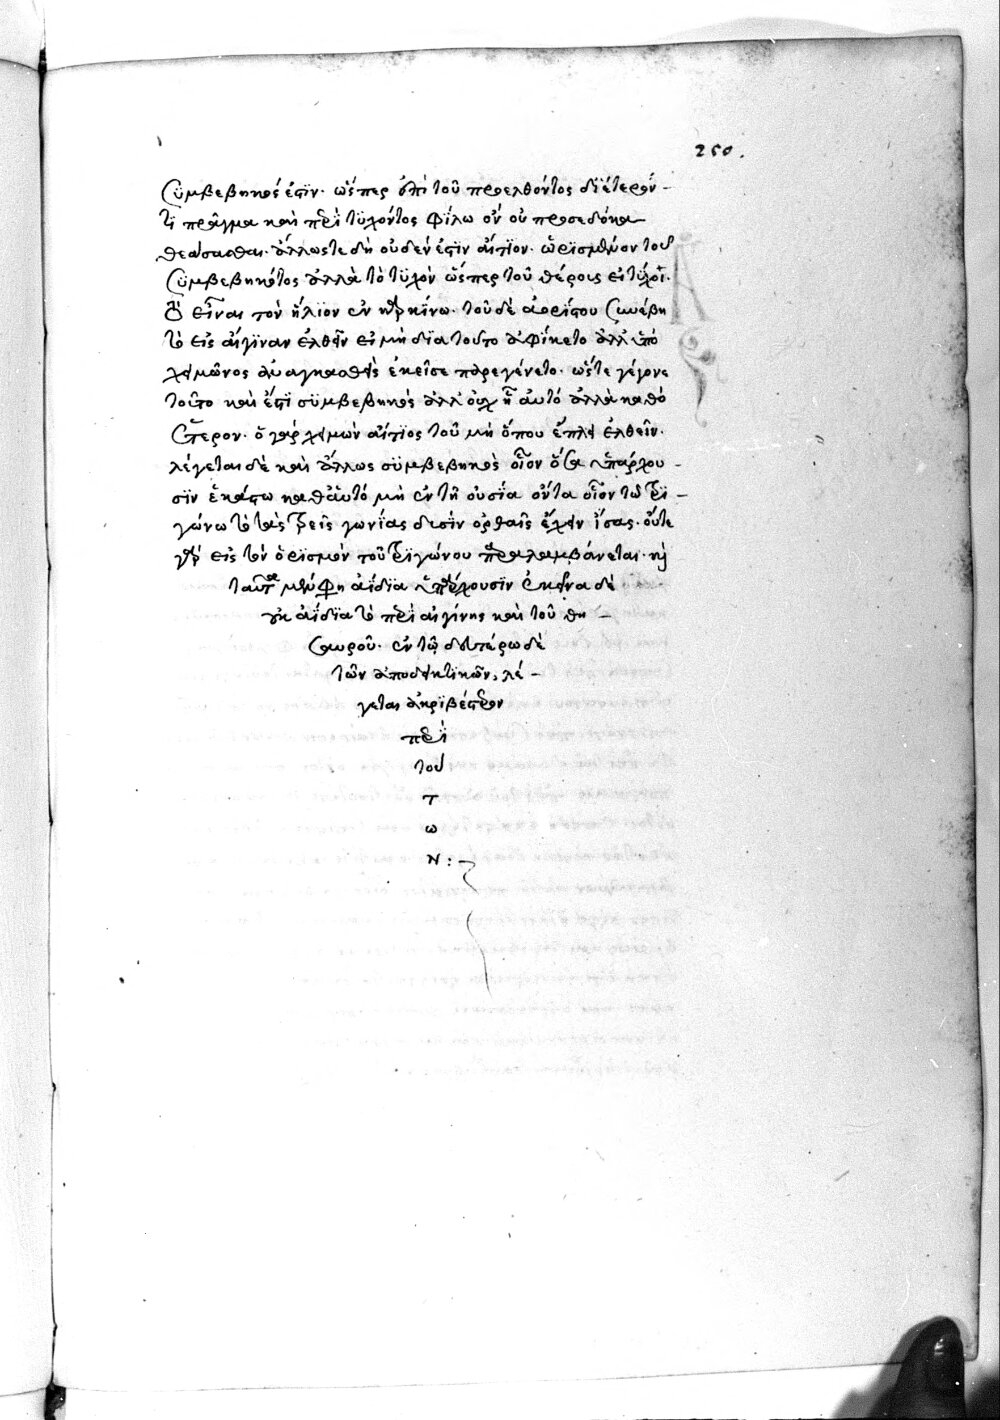 250.
συμβεβηκός ἐστιν. ὥσπερ ἐπὶ τοῦ προελθόντος δι' ἕτερόν
τι πρᾶγμα καὶ περιτυχόντος φίλω ὃν οὐ προσεδόκα
θεάσασθαι. ἄλλως τε δὴ οὐδέν ἐστιν αἴτιον ὡρισμένον τοῦ
συμβεβηκότος ἀλλὰ τὸ τυχὸν ὥσπερ τοῦ θέρους εἰ τύχοι
εἶναι τὸν ἥλιον ἐν καρκίνω. τοῦ δὲ ἀορίστου συνέβη
τὸ εἰς αἴγιναν ἐλθεῖν εἰ μὴ διὰ τοῦτο ἀφίκετο ἀλλ' ὑπὸ
χειμῶνος ἀναγκασθεὶς ἐκεῖσε παρεγένετο. ὥστε γέγονε
τοῦτο καὶ ἔστι συμβεβηκὸς ἀλλ' οὐχ ἧ αὐτὸ ἀλλὰ καθὸ
ἕτερον. ὁ γὰρ χειμὼν αἴτιος τοῦ μὴ ὅπου ἔπλει ἐλθεῖν.
λέγεται δὲ καὶ ἄλλως συμβεβηκὸς οἷον ὅσα ὑπάρχου-
σιν ἑκάστω καθ' αὑτὸ μὴ ἐν τῆ οὐσία ὄντα οἷον τῶ τρι-
γώνω τὸ τὰς τρεῖς γωνίας δυσὶν ὀρθαῖς ἔχειν ἴσας. οὔτε
γὰρ εἰς τὸν ὁρισμὸν τοῦ τριγώνου παραλαμβάνεται. καὶ
ταῦτα μὲν ἀίδια ὑπάρχουσιν ἐκεῖνα δὲ
οὐκ ἀίδια τὸ περὶ αἰγίνης καὶ τοῦ θη-
σαυροῦ. ἐν τῶ δευτέρω δὲ
τῶν ἀποδεικτικῶν, λέ-
γεται ἀκριβέστερον
περὶ
τού
τ
ω
ν: